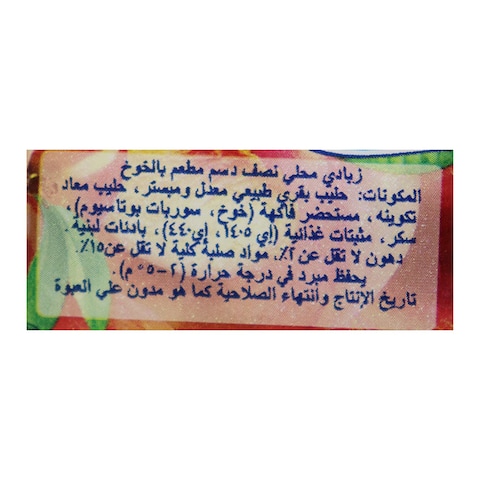 زبادي محلي نصف دسم مطعم بالخوخ
المكونات: حليب بقري طبيعي معدل ومبستر، حليب معاد
تكوينه، مستحضر فاكهة (خوخ، سوربات بوتاسيوم)،
سكر، مثبتات غذائية ((إي ١٤٠٥، إي٤٤٠)، بادئات لبنية.
دهون لا تقل عن ٢٪. مواد صلبة كلية لا تقل عن١٥٪.
يحفظ مبرد في درجة حرارة (٢-٥° م).
تاريخ الإنتاج وأنتهاء الصلاحية كما هو مدون علي العبوة